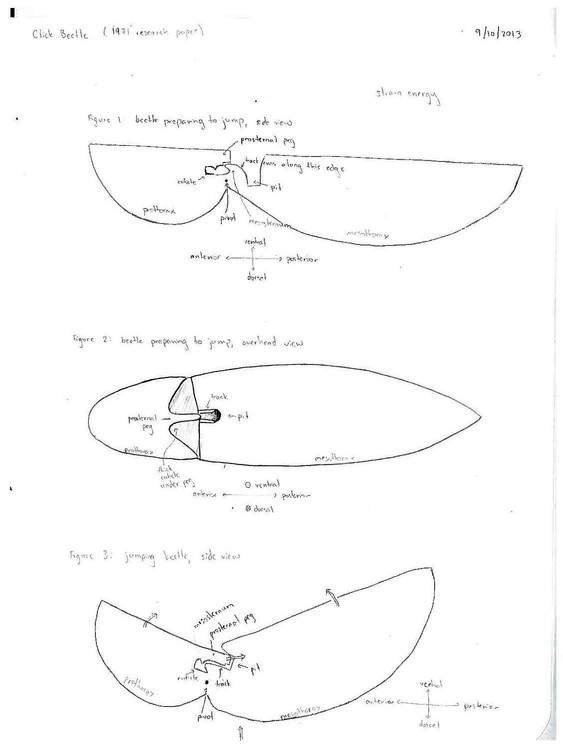 Click Beetle (1971 research paper) 9/10/2013
strain energy
Figure 1 beetle preparing to jump, side view
prosternal peg
track runs along this edge
cuticle
pit
prothorax
pivot
mesosternum
mesothorax
ventral
anterior posterior
dorsal
Figure 2: beetle preparing to jump, overhead view
track
prosternal
peg
pit
prothorax
thick
cuticle
under peg
mesothorax
ventral
anterior posterior
dorsal
Figure 3: jumping beetle, side view
mesosternum
prosternal peg
cuticle
track
pit
prothorax
pivot
mesothorax
ventral
anterior posterior
dorsal